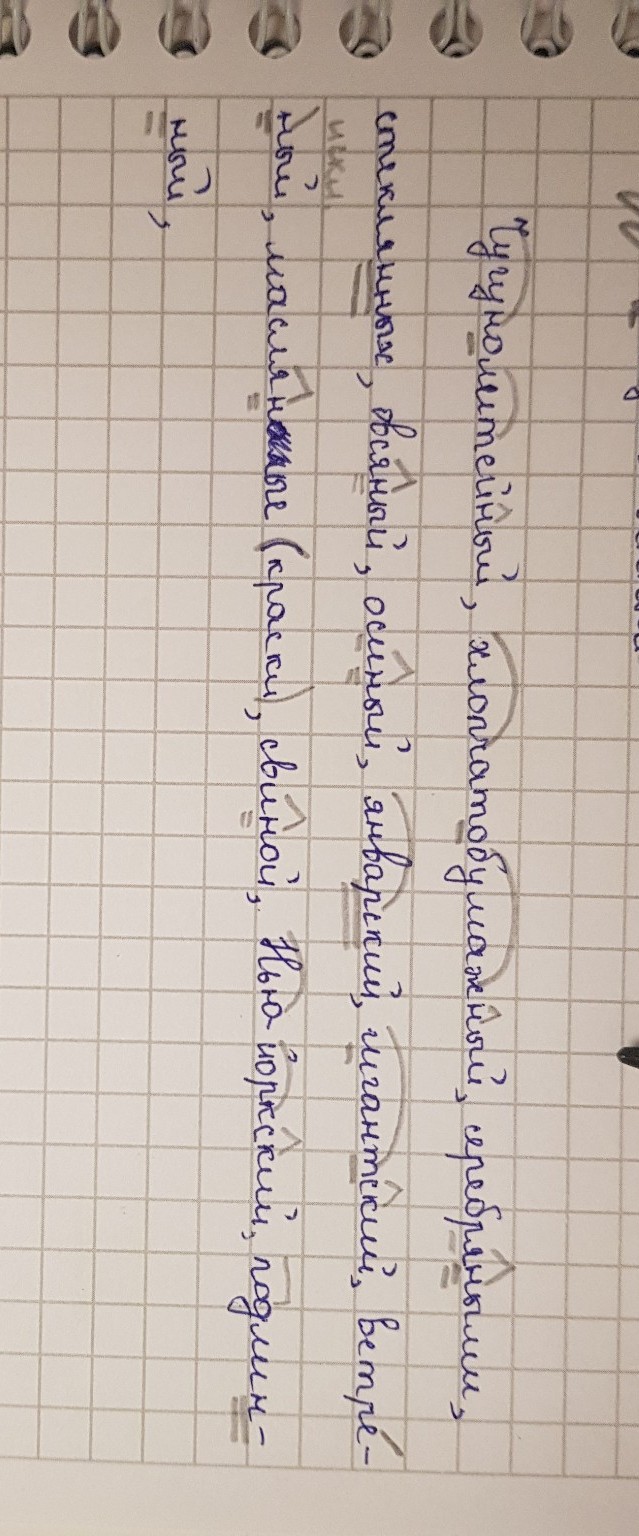 Чугунолитейный, хлопчатобумажный, серебряными,
стеклянных, овсяный, осиный, январский, гигантский, ветре-
искл.
ный, масляные (краски), свиной, Нью йоркский, подлин-
ный,